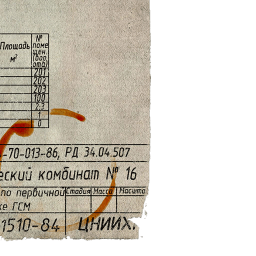 Площадь
м²
№
поме
щен.
(вар.
ота)
201
202
203
100
2,3
1
0
-70-013-86, РД 34.04.507
еский комбинат № 16
по первичной Стадия Масса Масшта
ке ГСМ
1510-84 ЦНИИХ.